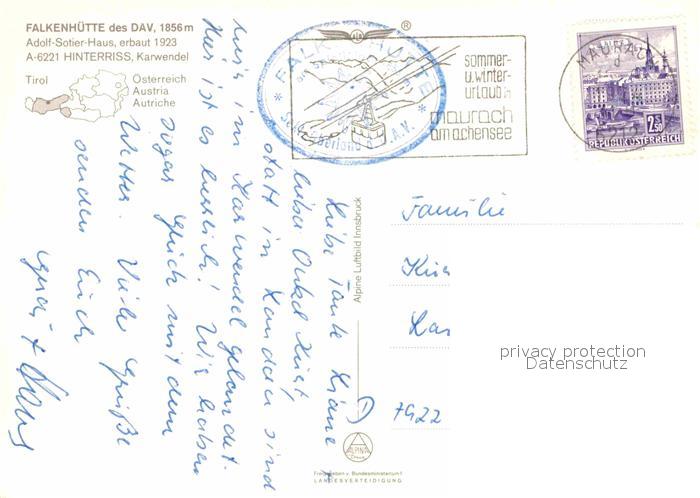 FALKENHÜTTE des DAV, 1856 m
Adolf-Sotier-Haus, erbaut 1923
A-6221 HINTERRISS, Karwendel
Tirol
Österreich
Austria
Autriche
FALKENHÜTTE
D.A.V.
®
sommer-
u. winter-
urlaub in
maurach
am achensee
MAURACH
2.50
REPUBLIK ÖSTERREICH
Liebe Tante
lieber Onkel Kurt,
statt in sind
wir im Karwendel gelandet.
Hier ist es herrlich! Wir haben
sogar Glück mit dem
Wetter. Viele Grüße
senden Euch
Alpine Luftbild Innsbruck
Familie
7922
ALPINA
Freigegeben v. Bundesministerium f.
LANDESVERTEIDIGUNG
privacy protection
Datenschutz